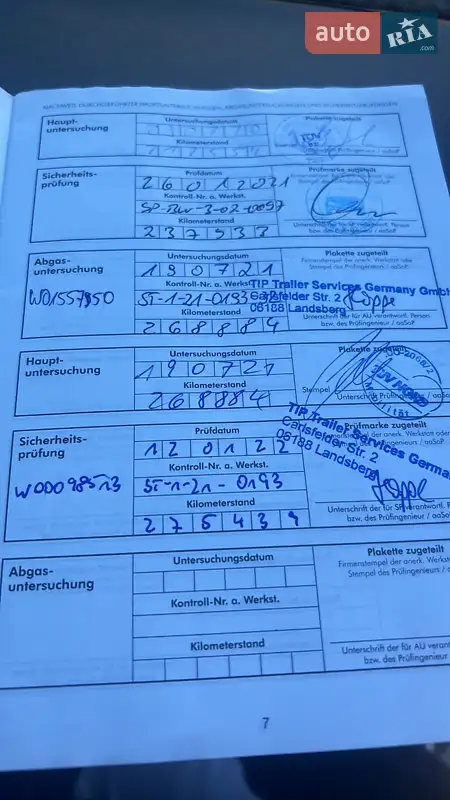 auto RIA.com
NACHWEIS DURCHGEFÜHRTER HAUPTUNTERSUCHUNGEN, ABGASUNTERSUCHUNGEN UND SICHERHEITSPRÜFUNGEN
Haupt-
untersuchung
Untersuchungsdatum
Kilometerstand
Plakette zugeteilt
Sicherheits-
prüfung
Prüfdatum
26012021
Kontroll-Nr. a. Werkst.
SP-BW-3-02-0097
Kilometerstand
237933
Prüfmarke zugeteilt
Abgas-
untersuchung
W01557850
Untersuchungsdatum
190721
Kontroll-Nr. a. Werkst.
ST-1-21-0193
Kilometerstand
268884
Plakette zugeteilt
Firmenstempel der anerk. Werkstatt oder
Stempel des Prüfingenieurs / aaSoP
TIP Trailer Services Germany GmbH
Carlsfelder Str. 2
06188 Landsberg
Unterschrift der für AU verantwortl. Person
bzw. des Prüfingenieur / aaSoP
Haupt-
untersuchung
Untersuchungsdatum
190721
Kilometerstand
268884
Plakette zugeteilt
Stempel
Unterschrift Prüfingenieur / aaSoP
Sicherheits-
prüfung
W00098513
Prüfdatum
120122
Kontroll-Nr. a. Werkst.
ST-1-21-0193
Kilometerstand
275439
Prüfmarke zugeteilt
TIP Trailer Services Germa
Carlsfelder Str. 2
06188 Landsberg
Unterschrift der für SP verantwortl. P
bzw. des Prüfingenieur / aaSo
Abgas-
untersuchung
Untersuchungsdatum
Kontroll-Nr. a. Werkst.
Kilometerstand
Plakette zugeteilt
Firmenstempel der anerk. Werkst
Stempel des Prüfingenieurs / a
Unterschrift der für AU verant
bzw. des Prüfingenieur
7